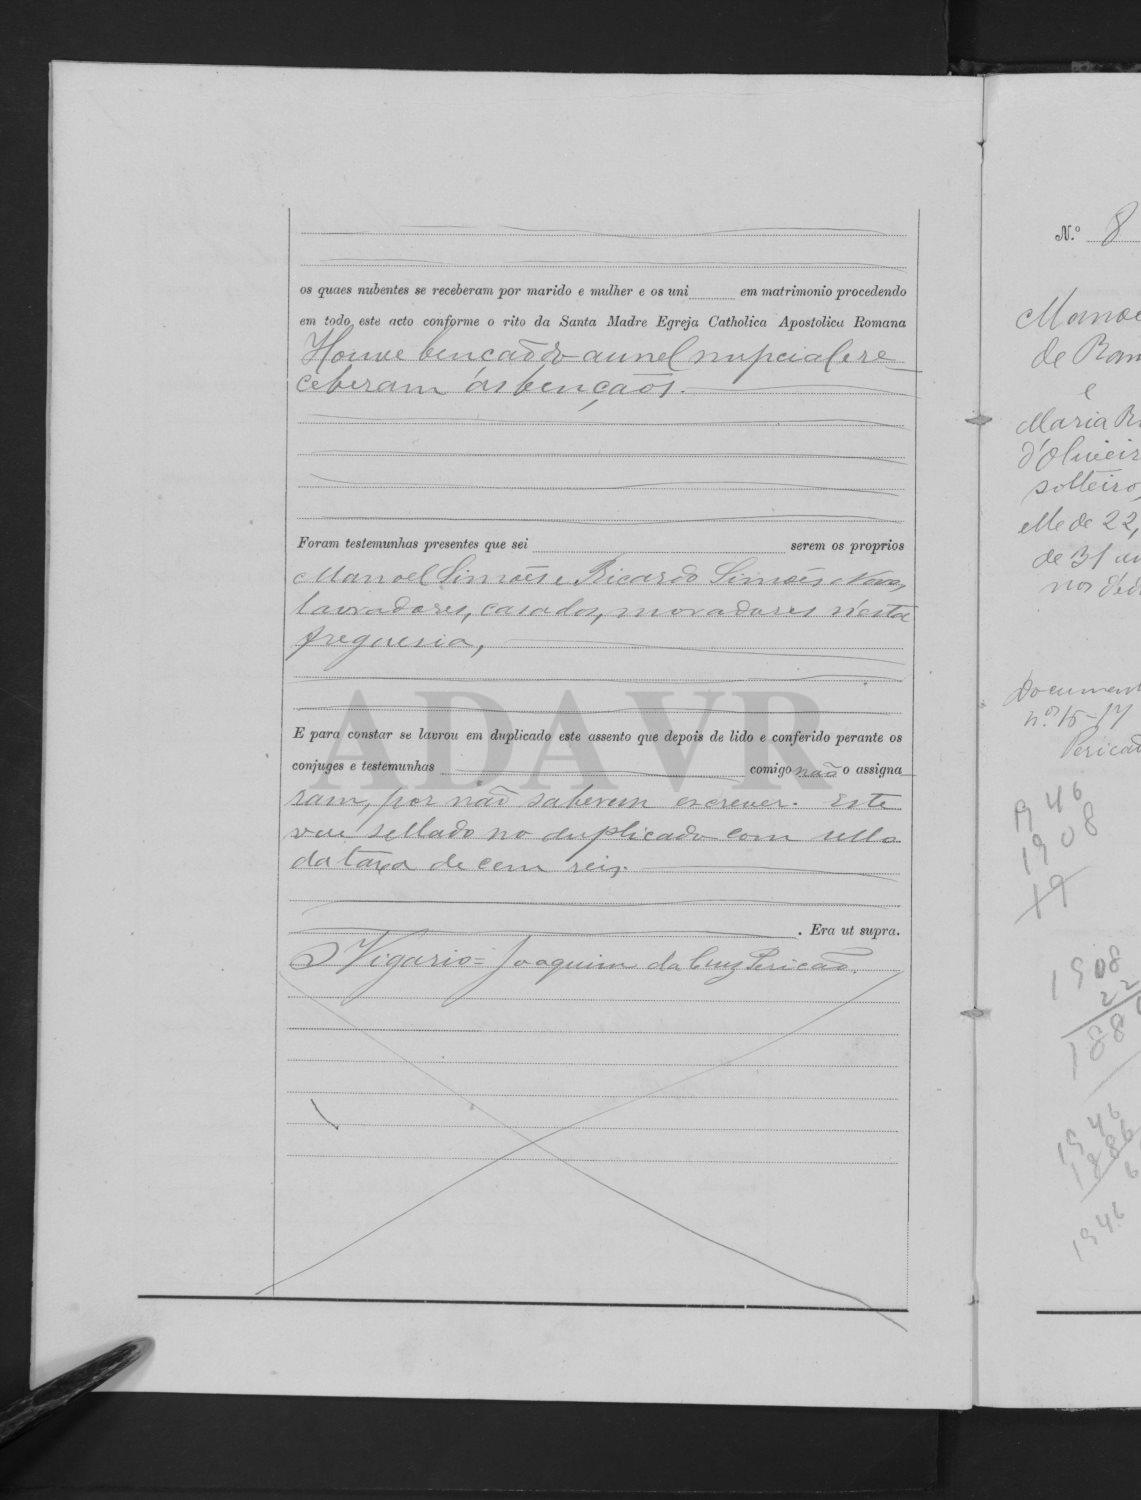 os quaes nubentes se receberam por marido e mulher e os uni em matrimonio procedendo
em todo este acto conforme o rito da Santa Madre Egreja Catholica Apostolica Romana
Houve bencão do annel nupcial e re
ceberam ás bençaõs.
Foram testemunhas presentes que sei serem os proprios
Manoel Simões e Ricardo Simões Novo,
lavradores, casados, moradores n'esta
freguesia,
ADAVR
E para constar se lavrou em duplicado este assento que depois de lido e conferido perante os
conjuges e testemunhas comigo não o assigna
ram, por não saberem escrever. Este
vae sellado no duplicado com sello
da taxa de cem reis.
. Era ut supra.
O Vigario = Joaquim da Cruz Pericão.
N.º 8
Manoe
de Ram
e
Maria R
d'Oliveir
solteiro,
elle de 22,
de 31 an
nos d'eda
Document
n.os 15-17
Pericão
1946
1908
19
1908
22
1886
1946
1886
6
1946